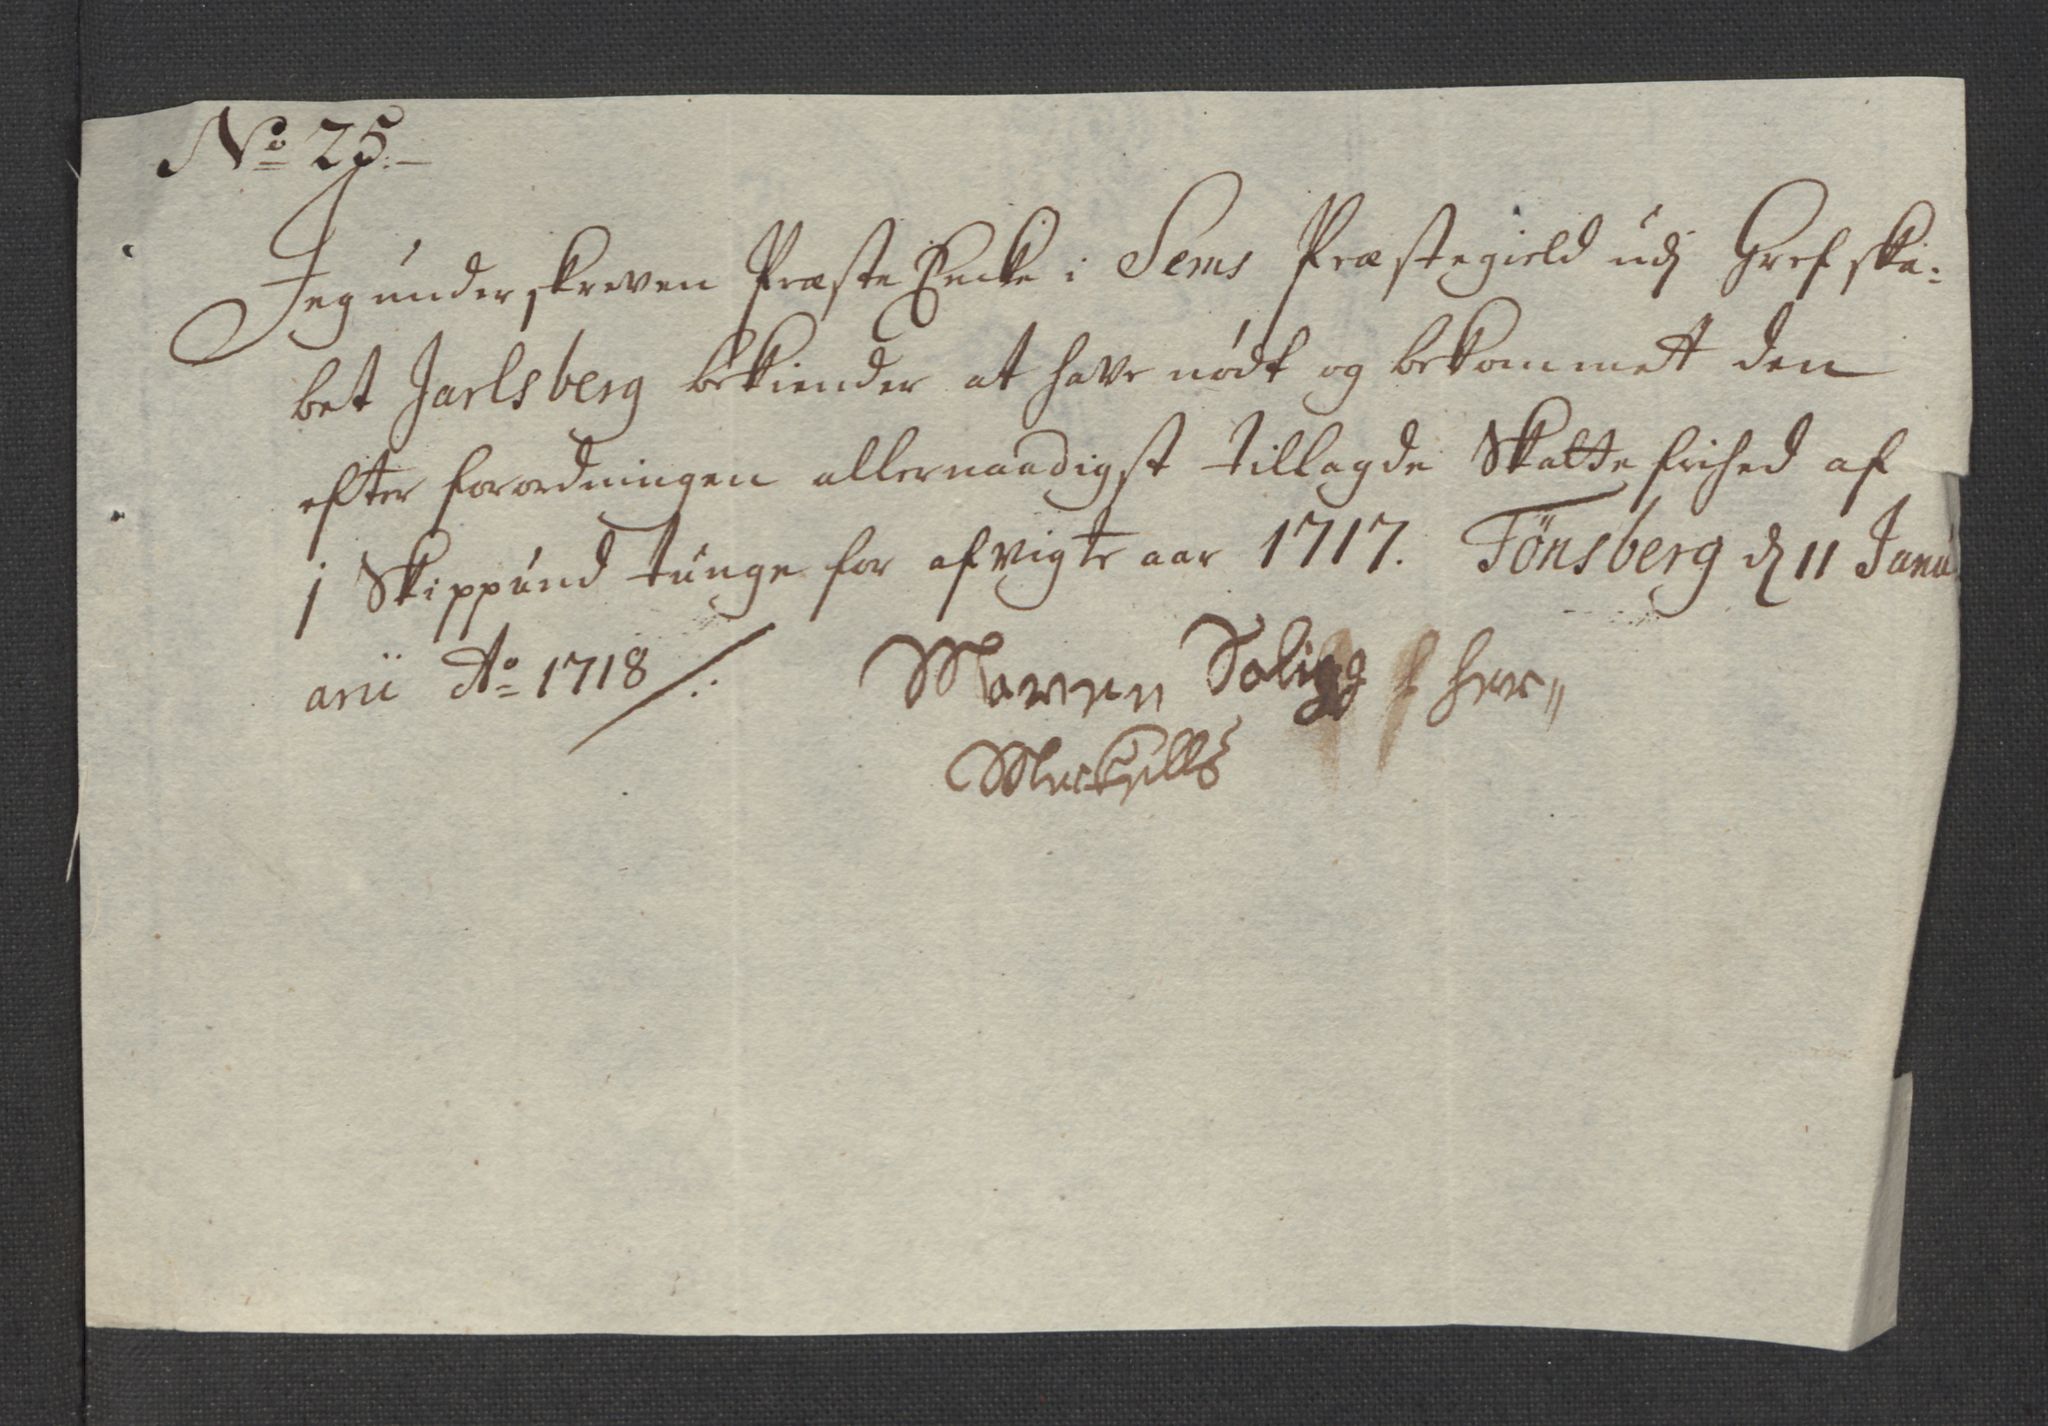 No 25.
Jeg underskreven Præste Encke i Sems Præstegield udj Grefska:
bet Jarlsberg bekiender at have nødt og bekommett den
efter forordningen allernaadigst tillagde Skatte frihed af
j Skippund tunge for afvigte aar 1717. Tönsberg d 11 Janu
arii Ao 1718 /.
Maren Salig her"